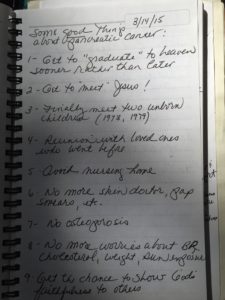 Some good things 3/14/15
about pancreatic cancer:
1- Get to "graduate" to heaven
sooner rather than later
2- Get to "meet" Jesus!
3- Finally meet two unborn
children (1978, 1979)
4- Reunion with loved ones
who went before
5 Avoid nursing home
6- No more skin doctor, pap
smears, etc.
7- No osteoporosis
8- No more worries about BP,
cholesterol, weight, sunscreen
9 Get the chance to show God's
faithfulness to others